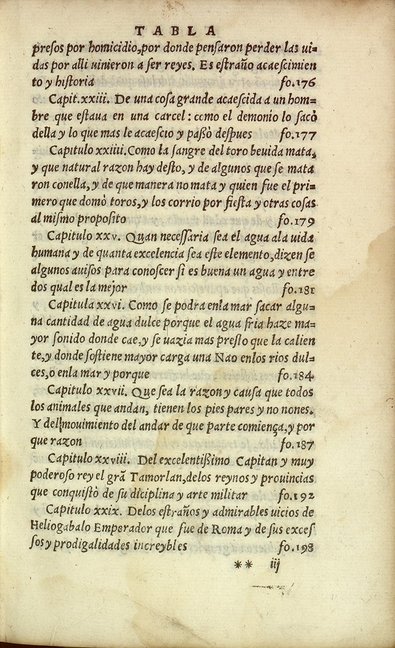 TABLA
presos por homicidio, por donde pensaron perder las ui-
das por alli uinieron a ser reyes. Es estraño acaescimien
to y historia fo.176
Capit.xxiii. De una cosa grande acaescida a un hom-
bre que estaua en una carcel: como el demonio lo sacò
della y lo que mas le acaescio y passò despues fo.177
Capitulo xxiiii. Como la sangre del toro beuida mata,
y que natural razon hay desto, y de algunos que se mata
ron conella, y de que manera no mata y quien fue el pri-
mero que domò toros, y los corrio por fiesta y otras cosas
al mismo proposito fo.179
Capitulo xxv. Quan necessaria sea el agua ala uida
humana y de quanta excelencia sea este elemento, dizen se
algunos auisos para conoscer si es buena un agua y entre
dos qual es la mejor fo.181
Capitula xxvi. Como se podra enla mar sacar algu-
na cantidad de agua dulce porque el agua fria haze ma-
yor sonido donde cae, y se uazia mas presto que la calien
te, y donde sostiene mayor carga una Nao enlos rios dul-
ces, o enla mar y porque fo.184
Capitulo xxvii. Que sea la razon y causa que todos
los animales que andan, tienen los pies pares y no nones.
Y del mouimiento del andar de que parte comiença, y por
que razon fo.187
Capitulo xxviii. Del excelentissimo Capitan y muy
poderoso rey el grã Tamorlan, delos reynos y prouincias
que conquistò de su diciplina y arte militar fo.192
Capitulo xxix. Delos estraños y admirables uicios de
Heliogabalo Emperador que fue de Roma y de sus exces
sos y prodigalidades increybles fo.198
** iij